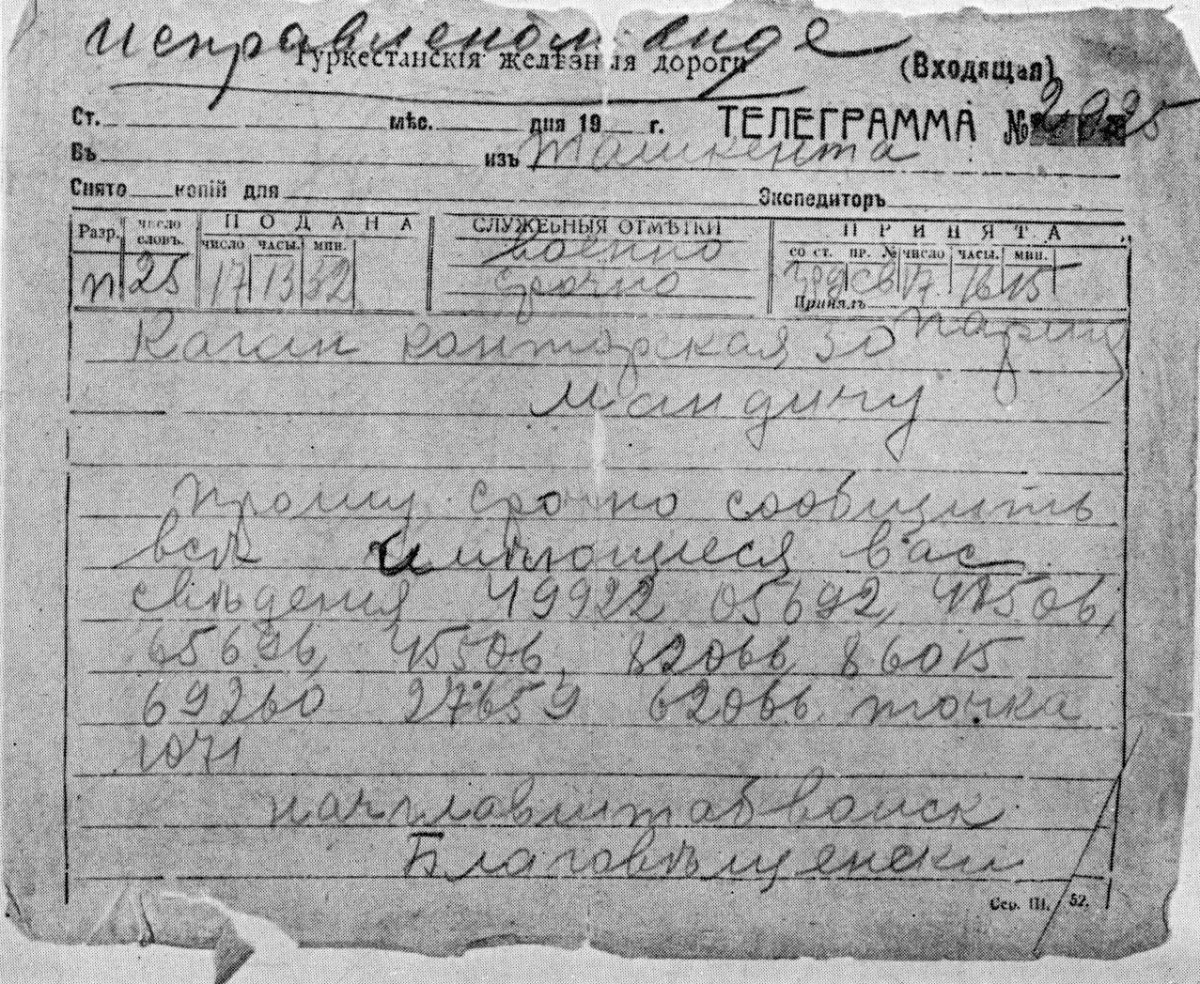 исправленом виде
Туркестанскія желѣзныя дороги
(Входящая)
Ст. мѣс. дня 19 г. ТЕЛЕГРАММА №
Въ изъ Ташкента
Снято копій для Экспедиторъ
Разр. число словъ. ПОДАНА СЛУЖЕБНЫЯ ОТМѢТКИ ПРИНЯТА
число часы. мин. военно со ст. пр. № число часы. мин.
п 25 17 13 32 срочно св 17 16 15
Принялъ
Каган конторская 30
Мандичу
Прошу срочно сообщить
всѣ имѣющиеся вас
свѣдения 49922 05692 47506
65696 45506 82066 86015
69260 27659 62066 точка
1071
начглавштабвойск
Благовѣщенски
Сер. III. 52.